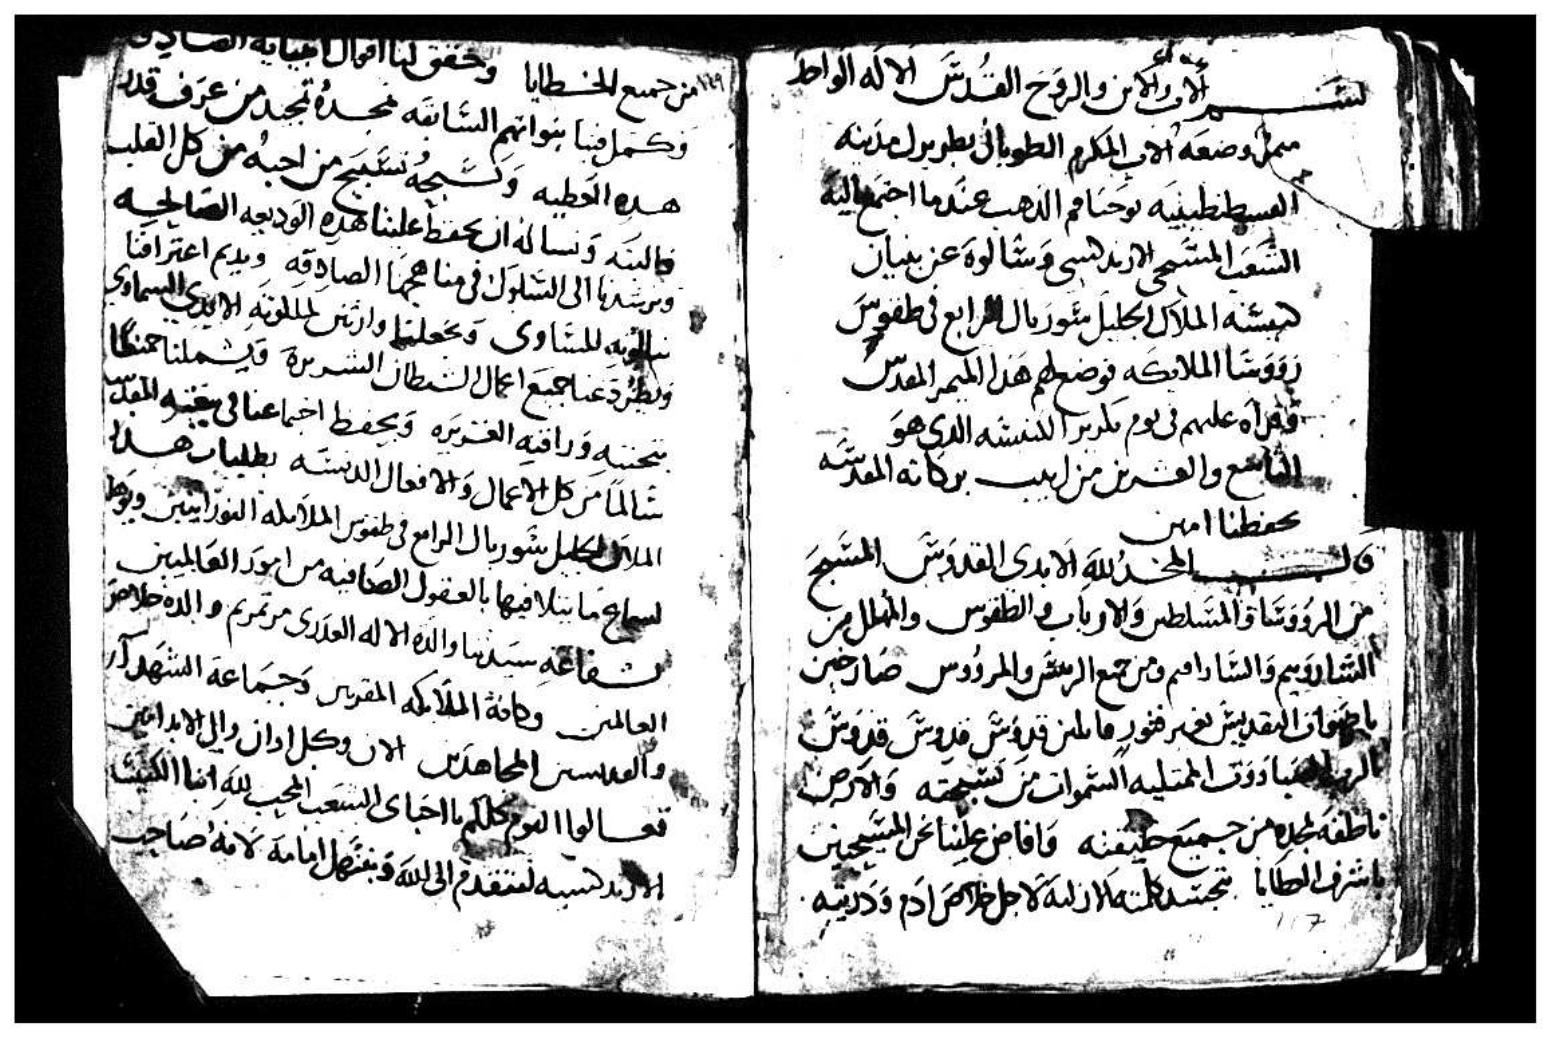 بسم الاب والابن والروح القدس الاله الواحد
ميمر وضعه الاب المكرم الطوباني بطريرك مدينه
القسطنطينيه يوحنا فم الدهب عندما اجتمع اليه
الشعب المسيحي الارتدكسي وسالوه عن بنيان
كنيسه الملاك الجليل سوريال الرابع في طقوس
رووسا الملايكه فوضع لهم هدا الميمر المقدس
وقراه عليهم في يوم تكريز الكنيسه الدي هو
التاسع والعشرين من ابيب بركاته المقدسه
تحفظنا امين
قال المجد لله الابدي القدوس المسبح
من الرووسا والمتسلطين والارباب والطقوس والمهلل من
الشاروبيم والسارافيم ومن جميع الريس والمرووس صارخين
باصوات التقديس بغير فتور قايلين قدوس قدوس قدوس
الرب الصباووت الممتليه السموات من تسبحته والارض
ناطقه بمجده من جميع خليقته وافاض علينا نحن المسيحيين
باشرف العطايا بتجسد كلمته الازليه لاجل خلاص ادم ودريته
117
١٦٩
من جميع الخطايا وحقق لنا اقوال انبيايه الصادقه
وكمل فينا بنواتهم السابقه نمجده تمجيد من عرف قدر
هده العطيه ونسبحه تسبيح من احبه من كل القلب
والنيه ونساله ان يحفظ علينا هده الوديعه الصالحه
ويرشدنا الى السلوك في مناهجها الصادقه ويديم اعترافنا
بتالوته المتساوي ويجعلنا وارثين لملكوته الابدي السماوي
ويطرد عنا جميع اعمال الشيطان الشريره ويشملنا جميعا
بتحننه ورافته الغزيره ويحفظ اجتماعنا في بيعته المقدسه
سالما من كل الاعمال والافعال الدنسه بطلبات هدا
الملاك الجليل سوريال الرابع في طقوس الملايكه النورانيين
لسماع ما يتلا فيها بالعقول الصافيه من امور العالميين
بشفاعة سيدتنا والدة الاله العدري مرتمريم والده خلاص
العالمين وكافة الملايكه المقربين وجماعة الشهدا
والقديسين المجاهدين الان وكل اوان والى الابد امين
تعالوا اليوم كلكم يا احباي الشعب المحب لله ابنا الكنيسه
الارتدكسيه لنتقدم الى الله ونبتهل امامه لانه صاحب